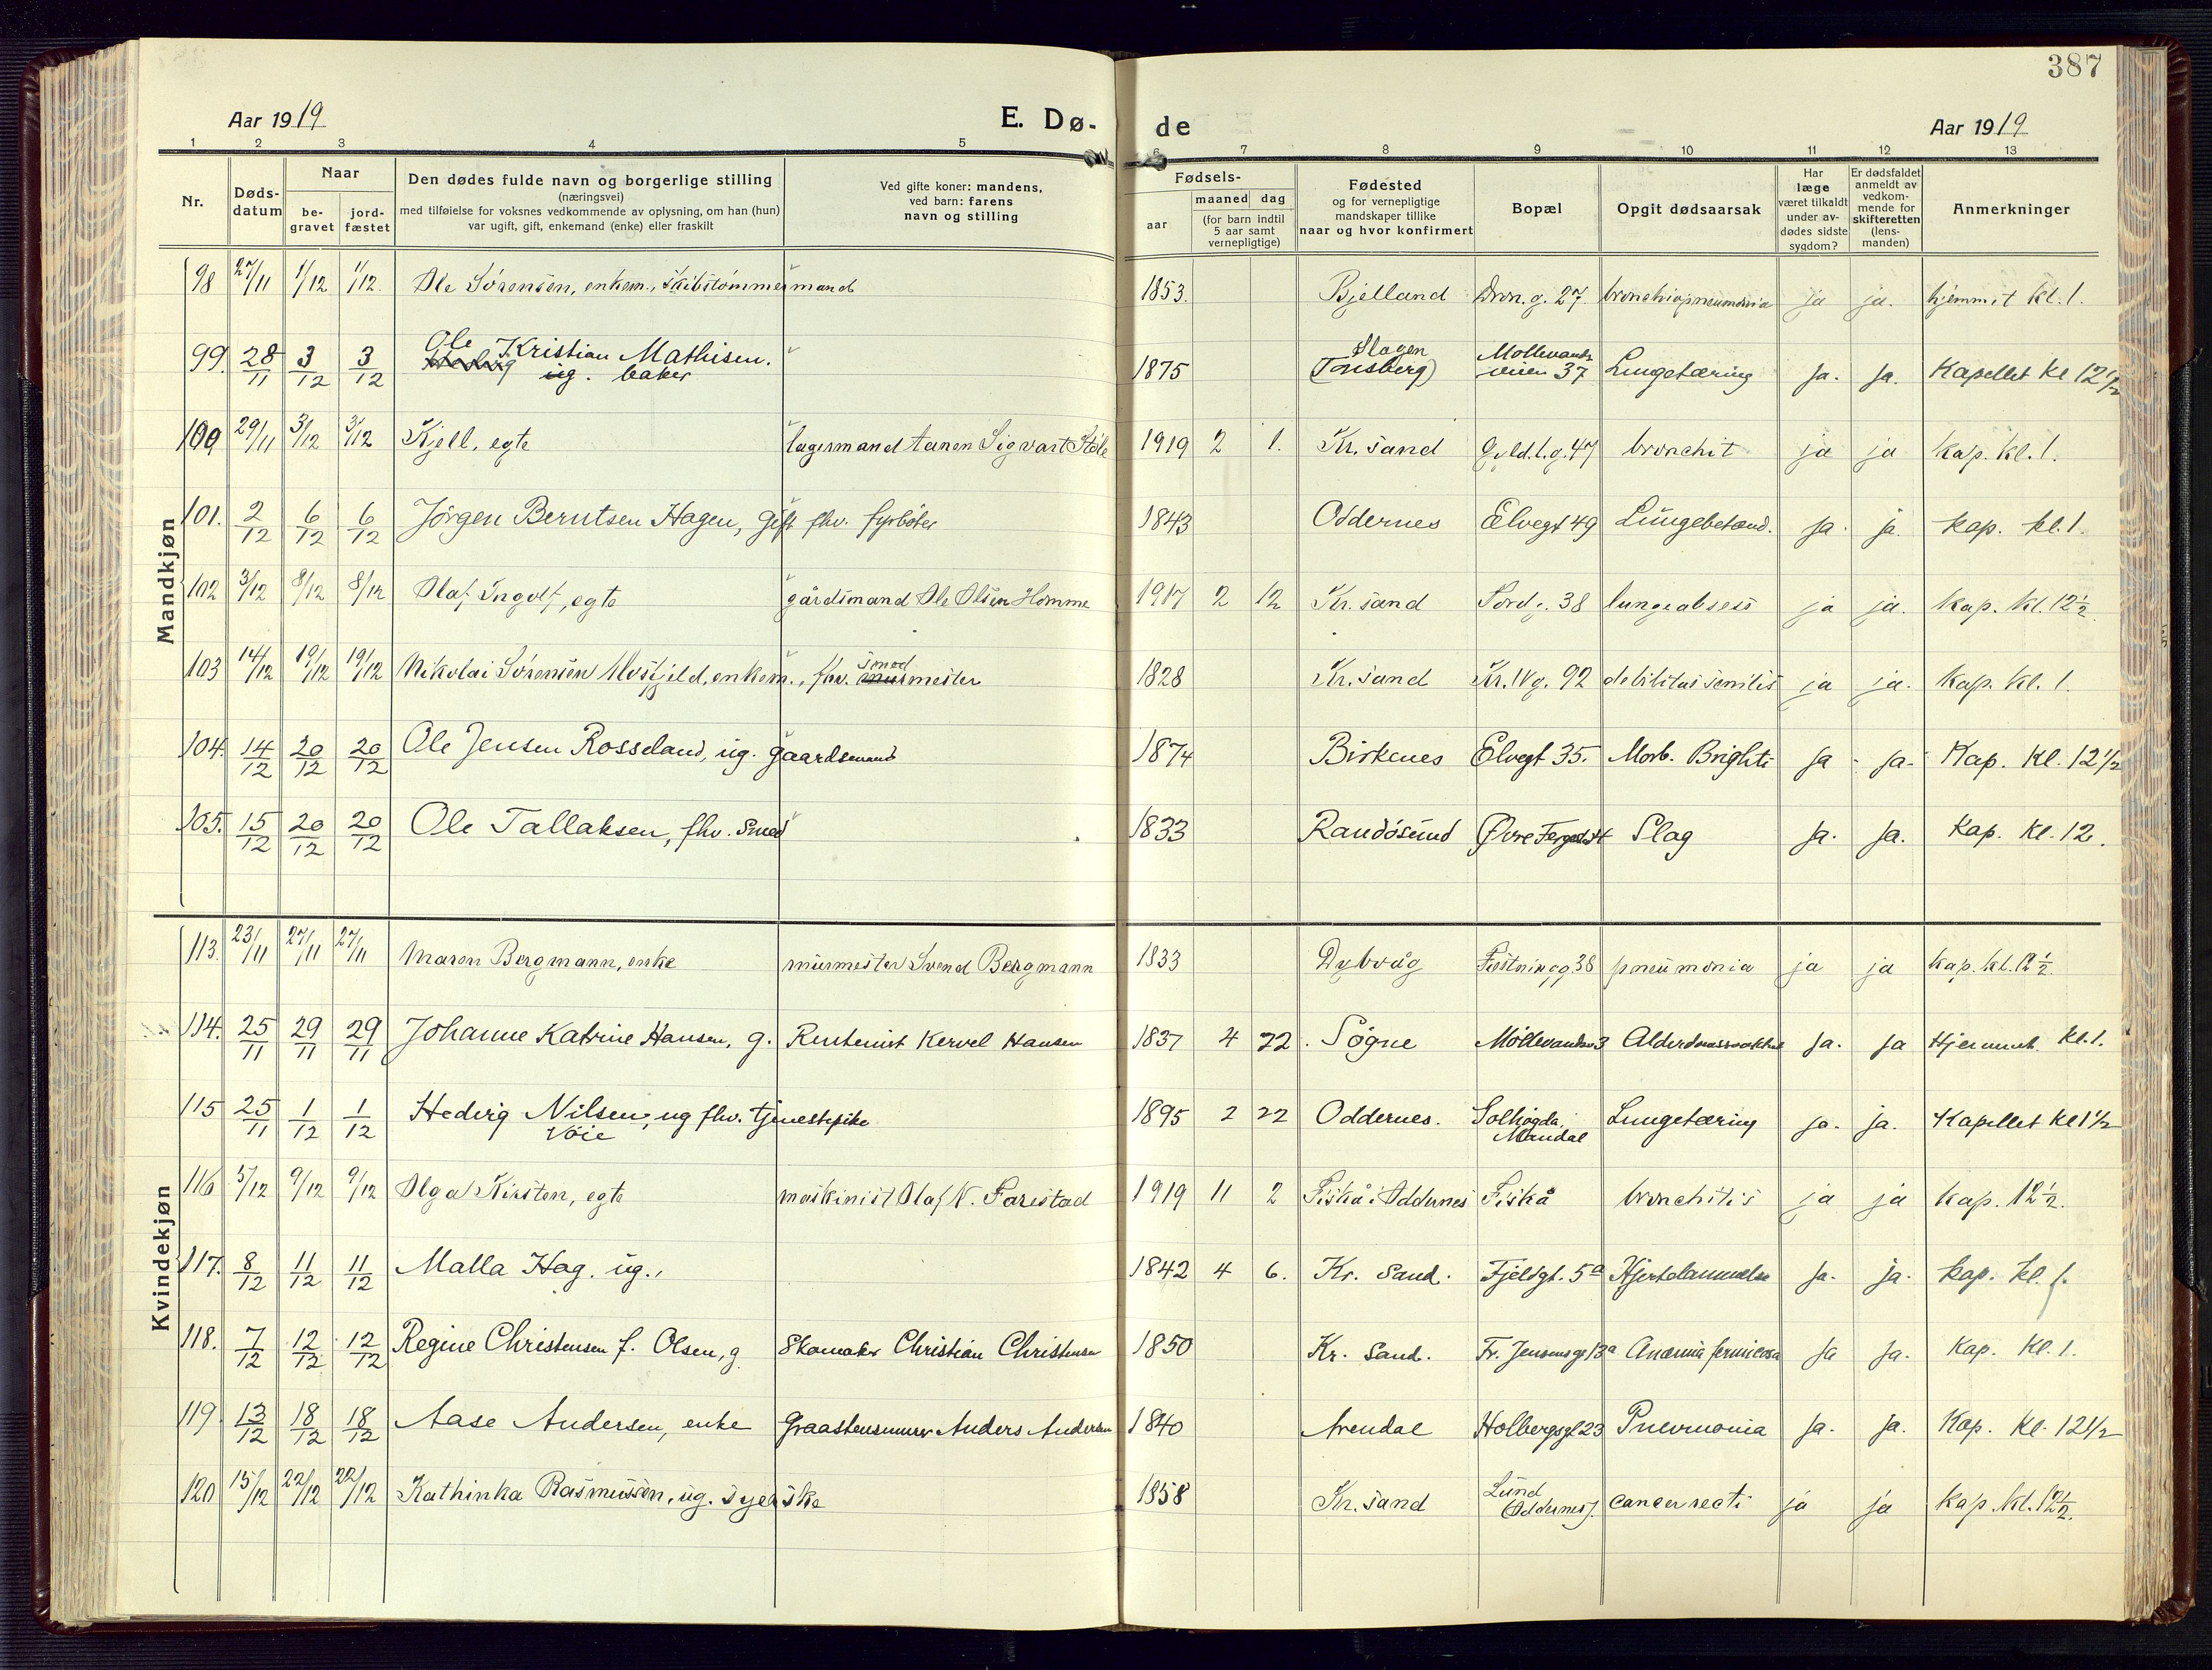 387
Aar 1919 E. Dø- de Aar 1919
1 2 3 4 5 6 7 8 9 10 11 12 13
Nr.
Døds-
datum
Naar
be-
gravet
jord-
fæstet
Den dødes fulde navn og borgerlige stilling
(næringsvei)
med tilføielse for voksnes vedkommende av oplysning, om han (hun)
var ugift, gift, enkemand (enke) eller fraskilt
Ved gifte koner: mandens,
ved barn: farens
navn og stilling
Fødsels-
aar
maaned dag
(for barn indtil
5 aar samt
vernepligtige)
Fødested
og for vernepligtige
mandskaper tillike
naar og hvor konfirmert
Bopæl
Opgit dødsaarsak
Har
læge
været tilkaldt
under av-
dødes sidste
sygdom?
Er dødsfaldet
anmeldt av
vedkom-
mende for
skifteretten
(lens-
manden)
Anmerkninger
Mandkjøn
98 27/11 1/12 1/12. Ole Sørensen, enkem., skibstømmermand 1853. Bjelland Dron.g. 27. bronchiopneumonia ja ja. hjemmet kl. 1.
99. 28/11 3/12 3/12 Ole Kristian Mathisen. ug. baker 1875 Slagen (Tønsberg) Møllevandsveien 37 Lungetæring ja. ja. Kapellet kl 12 1/2
100 29/11 3/12 3/12 Kjell, egte lagermand Aanen Sigvart Støle 1919 2 1. Kr.sand Gyld.l.g. 47 bronchit ja ja kap. kl. 1.
101. 2/12 6/12 6/12 Jörgen Berntsen Hagen, gift fhv. fyrbøter 1843 Oddernes Elvegt 49 Lungebetænd. ja. ja. kap. kl. 1.
102 3/12 8/12 8/12 Olaf Ingolf, egte gårdsmand Ole Olsen Homme 1917 2 12 Kr.sand Tord.g. 38 lungeabsess ja ja. kap. kl. 12 1/2.
103 14/12 19/12 19/12 Nikolai Sørensen Mosfjeld, enkem., fhv. smedmester 1828 Kr.sand Kr.IVg. 92 debilitas senilis ja ja. kap. kl. 1.
104. 14/12 20/12 20/12 Ole Jensen Rosseland, ug. gaardsmand 1874 Birkenes Elvegt 35. Morb. Brighti ja ja. Kap. kl. 12 1/2
105. 15/12 20/12 20/12 Ole Tallaksen, fhv. smed 1833 Randösund Øvre Slag ja. ja. Kap. kl. 12.
Kvindekjøn
113. 23/11 27/11 27/11 Maren Bergmann, enke murmester Svend Bergmann 1833 Dybvåg Festningg. 38 pneumonia ja ja kap. kl. 12 1/2.
114. 25/11 29/11 29/11 Johanne Katrine Hansen, g. Rentenist Kervel Hansen 1837 4 22. Søgne Møllevandsv 3 Alderdomssvakhet ja. ja Hjemmet. kl. 1.
115 25/11 1/12 1/12 Hedvig Nilsen, ug fhv. tjenestepike Vöie 1895 2 22 Oddernes. Solhøgda, Mandal Lungetæring ja. ja. Kapellet kl 1 1/2
116 5/12 9/12 9/12 Olga Kirsten, egte maskinist Olaf N. Farestad 1919 11 2 Fiskå i Oddernes Fiskå bronchitis ja ja kap. 12 1/2.
117. 8/12 11/12 11/12 Malla Hag. ug., 1842 4 6. Kr. Sand. Fjeldgt. 5a Hjertelammelse ja. ja. kap. kl. 1.
118. 7/12 12/12 12/12 Regine Christensen f. Olsen, g. Skomaker Christian Christensen 1850 Kr. Sand. Fr. Jensensgt 13a Anæmia perniciosa ja ja. Kap. kl. 1.
119 13/12 18/12 18/12 Aase Andersen, enke Graastensmurer Anders Andersen 1840 Arendal Holbergsgt 23 Pneumonia ja. ja. Kap. kl. 12 1/2
120 15/12 22/12 22/12 Kathinka Rasmussen, ug. syerske 1858 Kr.sand Lund (Oddernes). cancer recti ja ja kap. kl. 12 1/2.